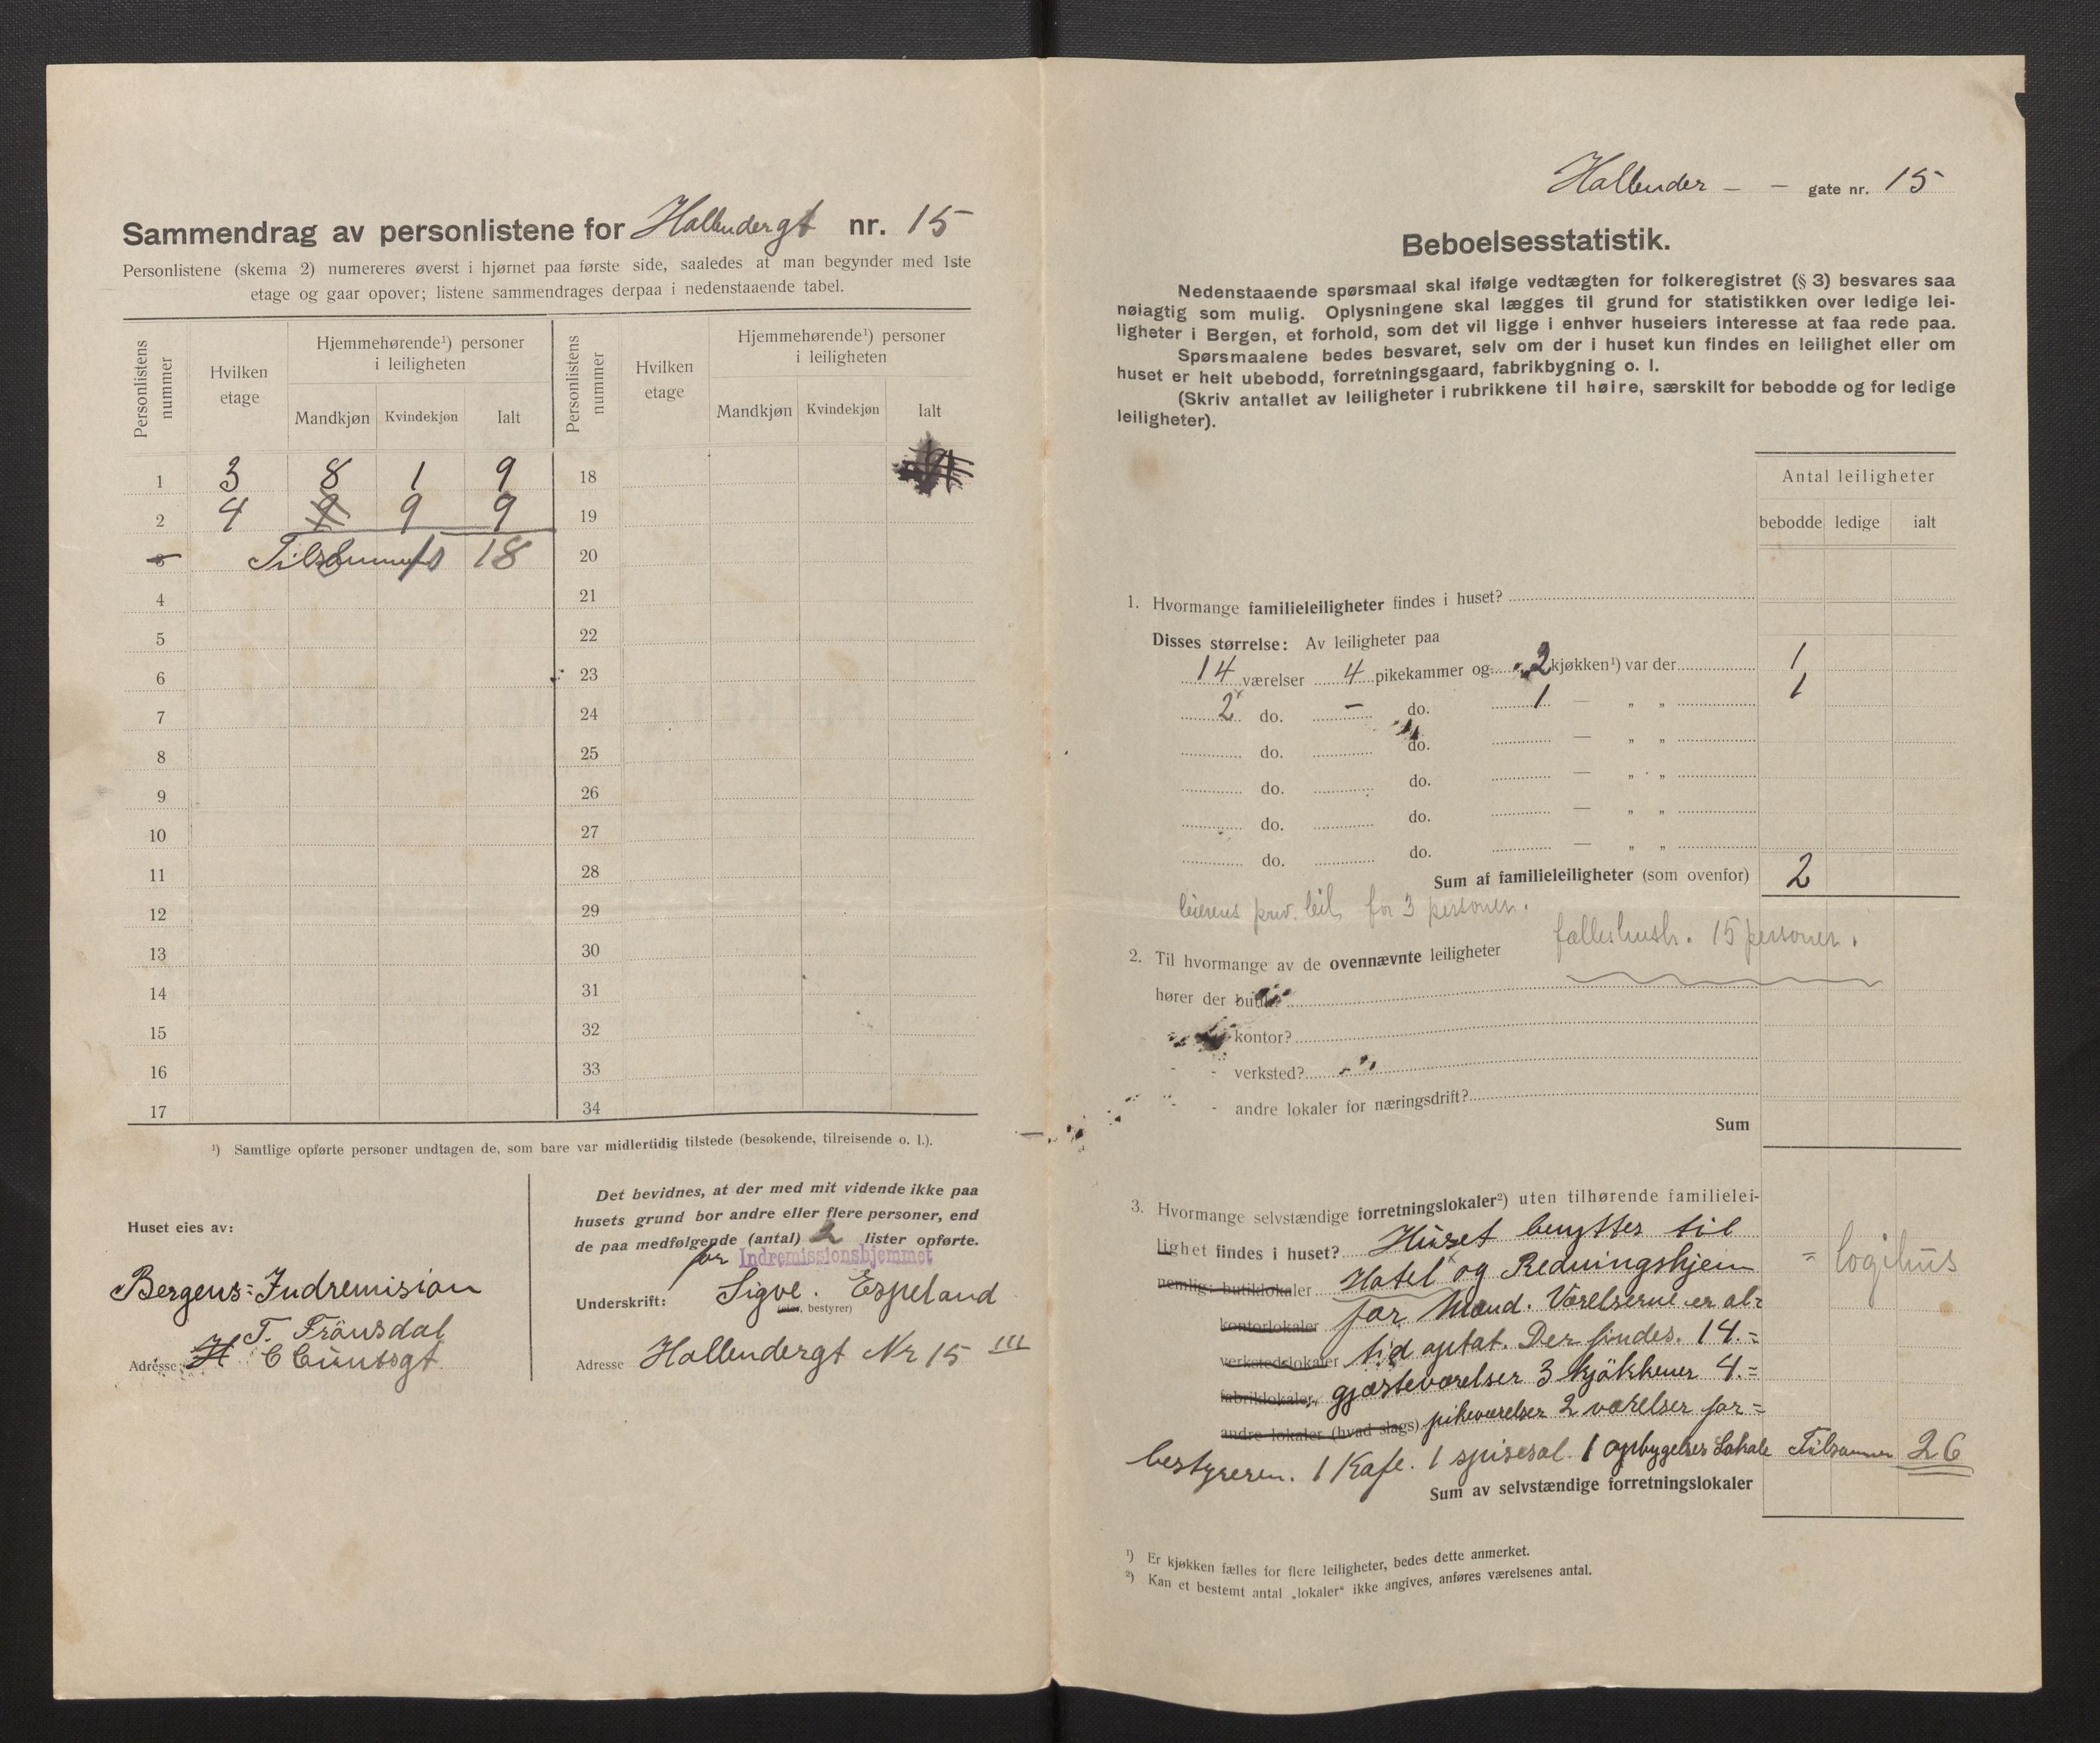 Sammendrag av personlistene for Hollendergt nr. 15
Personlistene (skema 2) numereres øverst i hjørnet paa første side, saaledes at man begynder med 1ste
etage og gaar opover; listene sammendrages derpaa i nedenstaaende tabel.
Personlistens nummer | Hvilken etage | Hjemmehørende¹) personer i leiligheten | Personlistens nummer | Hvilken etage | Hjemmehørende¹) personer i leiligheten
Mandkjøn | Kvindekjøn | Ialt | Mandkjøn | Kvindekjøn | Ialt
1 3 8 1 9 18
2 4 9 9 19
3 Tilsammen 8 10 18 20
4 21
5 22
6 23
7 24
8 25
9 26
10 27
11 28
12 29
13 30
14 31
15 32
16 33
17 34
¹) Samtlige opførte personer undtagen de, som bare var midlertidig tilstede (besøkende, tilreisende o. l.).
Huset eies av:
Bergens=Indremision
T. Frönsdal
Adresse: C Cuntsgt
Det bevidnes, at der med mit vidende ikke paa
husets grund bor andre eller flere personer, end
de paa medfølgende (antal) 2 lister opførte.
for Indremissionshjemmet
Underskrift: Sigve. Espeland
(eier, bestyrer)
Adresse Hollendergt Nr 15 III
Hollender - - gate nr. 15
Beboelsesstatistik.
Nedenstaaende spørsmaal skal ifølge vedtægten for folkeregistret (§ 3) besvares saa
nøiagtig som mulig. Oplysningene skal lægges til grund for statistikken over ledige lei-
ligheter i Bergen, et forhold, som det vil ligge i enhver huseiers interesse at faa rede paa.
Spørsmaalene bedes besvaret, selv om der i huset kun findes en leilighet eller om
huset er helt ubebodd, forretningsgaard, fabrikbygning o. l.
(Skriv antallet av leiligheter i rubrikkene til høire, særskilt for bebodde og for ledige
leiligheter).
Antal leiligheter
bebodde ledige ialt
1. Hvormange familieleiligheter findes i huset?
Disses størrelse: Av leiligheter paa
14 værelser 4 pikekammer og 2 kjøkken¹) var der 1
2 do. - do. 1 — „ „ 1
do. do. — „ „
do. do. — „ „
do. do. — „ „
do. do. — „ „
Sum af familieleiligheter (som ovenfor) 2
leierens priv. leil. for 3 personer.
fælleshush. 15 personer.
2. Til hvormange av de ovennævnte leiligheter
hører der butik?
- - kontor?
- - verksted?
- - andre lokaler for næringsdrift?
Sum
3. Hvormange selvstændige forretningslokaler²) uten tilhørende familielei-
lighet findes i huset? Huset benyttes til
nemlig: butiklokaler Hotel og Redningshjem = logihus
kontorlokaler for Mænd. Værelserne er al=
verkstedslokaler tid optat. Der findes. 14.=
fabriklokaler, gjæsteværelser 3 kjökkener 4.=
andre lokaler (hvad slags) pikeværelser 2 værelser for=
bestyreren. 1 Kafe. 1 spisesal. 1 opbygelses Lokale Tilsammen 26
Sum av selvstændige forretningslokaler
¹) Er kjøkken fælles for flere leiligheter, bedes dette anmerket.
²) Kan et bestemt antal „lokaler“ ikke angives, anføres værelsenes antal.